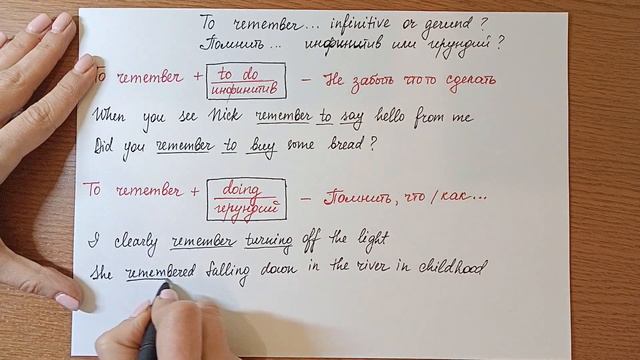 To remember... infinitive or gerund?
Помнить... инфинитив или герундий?
To remember + to do инфинитив - Не забыть что то сделать
When you see Nick remember to say hello from me
Did you remember to buy some bread?
To remember + doing герундий - Помнить, что / как...
I clearly remember turning off the light
She remembered falling down in the river in childhood